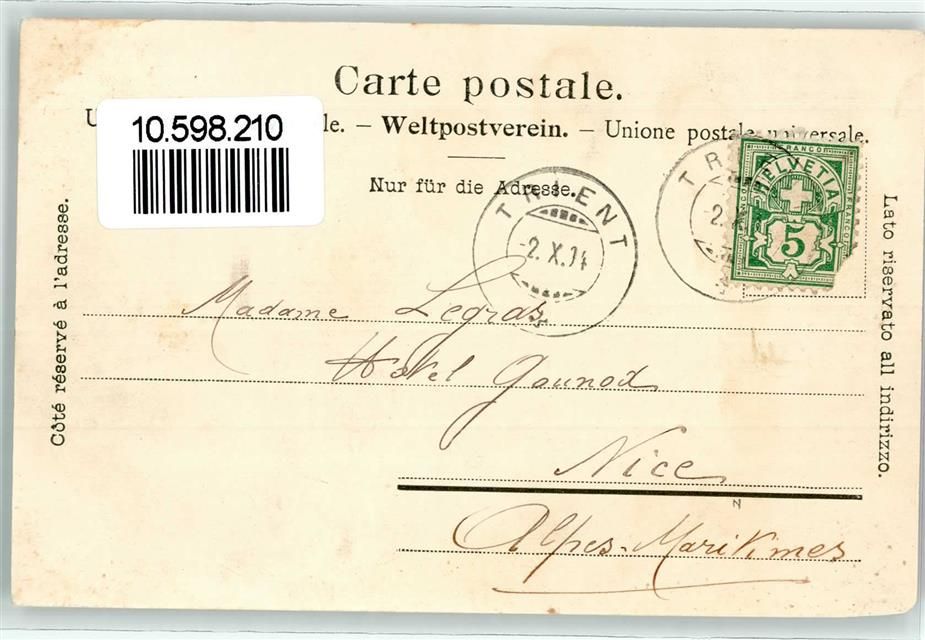 Carte postale.
10.598.210
U le. – Weltpostverein. – Unione postale universale.
Nur für die Adresse.
Côté réservé à l'adresse.
Lato riservato all indirizzo.
TRIENT
-2.X.14
TR
-2.X
FRANCO
HELVETIA
FRANCO
5
Madame Legras
Hôtel Gounod
Nice
N
Alpes-Maritimes